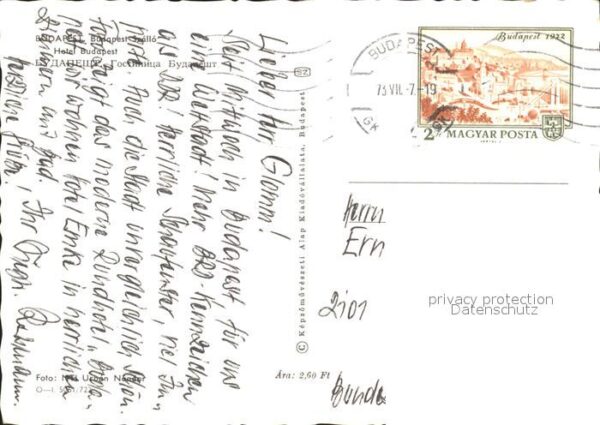 BUDAPEST, Budapest Szálló
Hotel Budapest
БУДАПЕШТ, Гостиница Будапешт
Lieber Herr Glomm!
Seit Mittwoch in Budapest für uns
eine Weltstadt! Mehr BRD-Kennzeichen
als DDR! Herrliche Schaufenster, viel
Auch die Stadt unvergleichlich schön.
zeigt das moderne Rundhotel,
wir wohnen Hotel Emke in herrlichen
Zimmern mit Bad.
Herzliche Grüße! Ihr
Foto:
Ára: 2,60 Ft
© Képzőművészeti Alap Kiadóvállalata, Budapest
BUDAPEST
73 VII. -7.-19
Budapest 1972
2 Ft MAGYAR POSTA
Herrn
Ern
2101
Bunde
privacy protection
Datenschutz